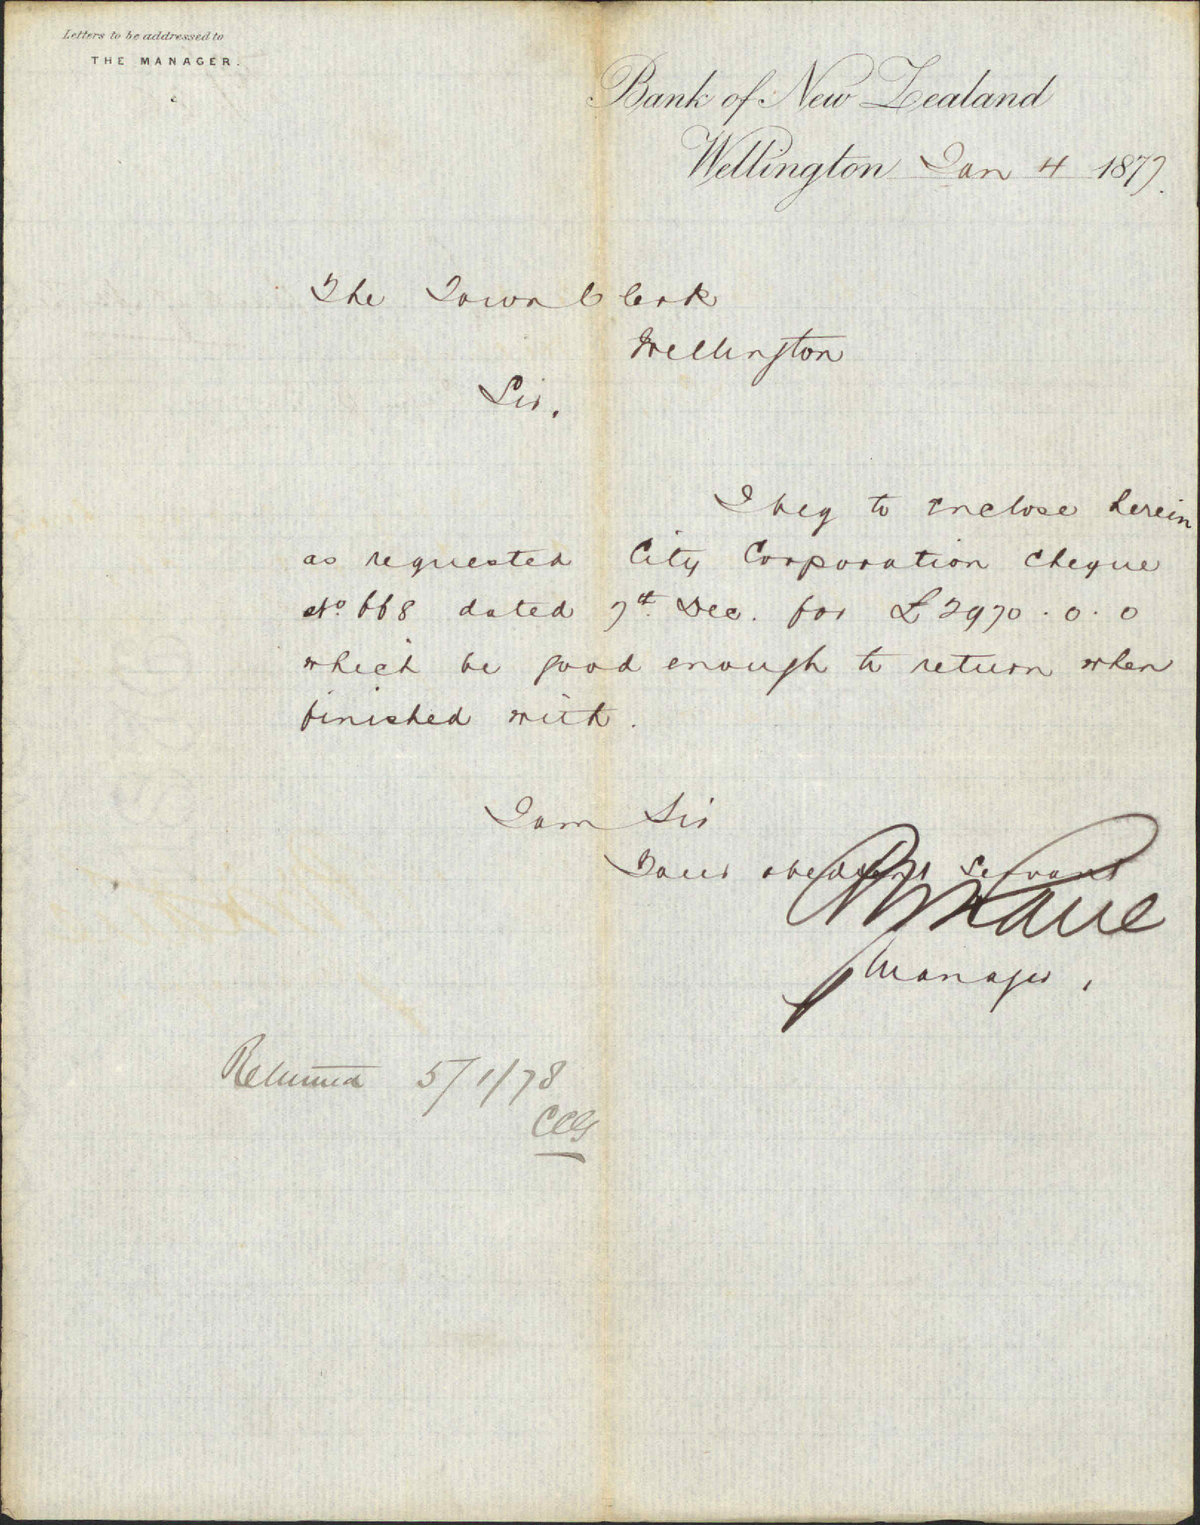 Letters to be addressed to
THE MANAGER.
Bank of New Zealand
Wellington Jan 4 1877.
The Town Clerk
Wellington
Sir,
I beg to enclose herein
as requested City Corporation cheque
No. 668 dated 7th Dec. for £2970.0.0
which be good enough to return when
finished with.
I am Sir
Your obedient Servant
Manager,
Returned 5/1/78